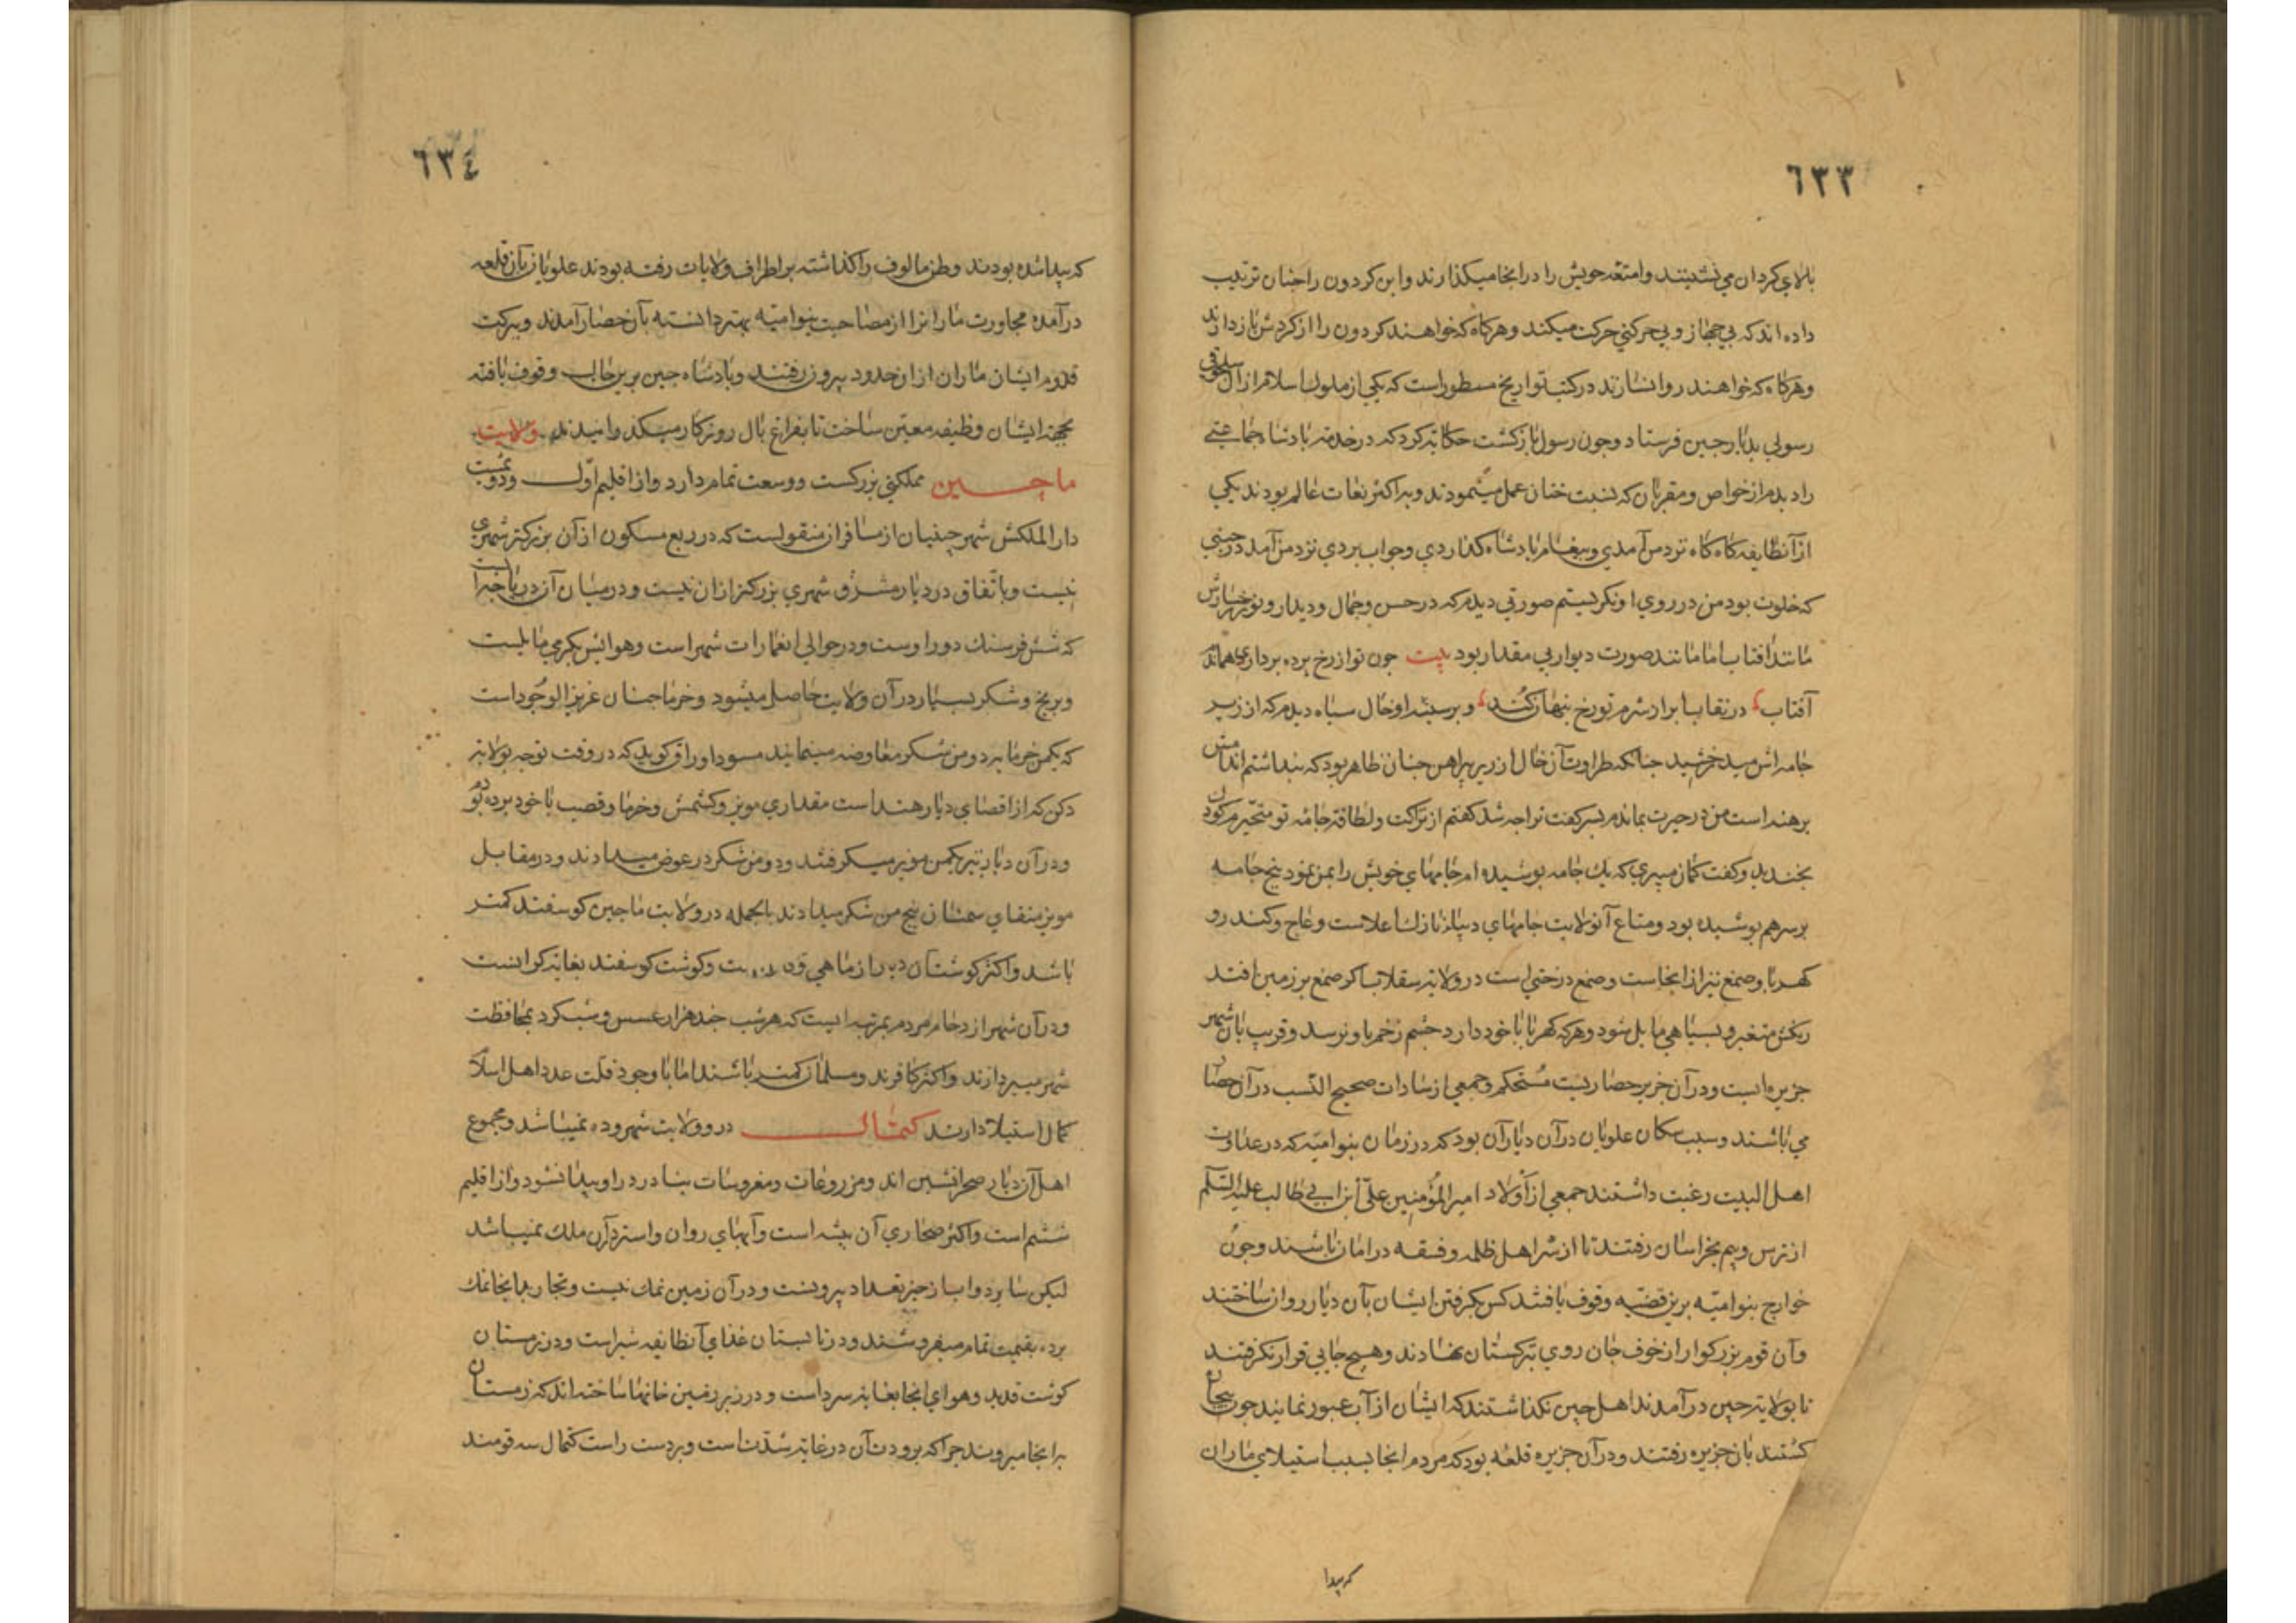 ٦٣٣
بالای کردان می نشینند وامتعه خویش را در انجا میکذارند واین کردون را چنان ترتیب
داده اند که بی جهاز و بی حرکتی حرکت میکند وهرکاه که خواهند کردون را از کردش باز دارند
وهرکاه که خواهند روانسازند در کتب تواریخ مسطور است که یکی از ملوک اسلام از آل سلجوق
رسولی بدیار چین فرستاد وچون رسول باز کشت حکایة کرد که در خدمة پادشاه جماعتی
را دیدم از خواص ومقربان که بنسبت ختنان عمل مینمودند وبر اکثر لغات عالم بودند یکی
از آنطایفه کاه کاه نزد من آمدی وپیغام پادشاه کذاردی وجواب بردی نزد من آمد در حینی
که خلوت بود من در روی او نکریستم صورتی دیدم که در حسن وجمال ودیدار ونور رخسارش
مانند آفتاب اما مانند صورت دیوار بی مقدار بود بیت چون تو از رخ پرده برداری هماندم
آفتاب در نقاب ابر از شرم تو رخ پنهان کند وبر سینه او خال سیاه دیدم که از زیر
جامه اش میدرخشید چنانکه طراوت آن خال از زیر پیراهن چنان ظاهر بود که پنداشتم اندامش
برهنه است من در حیرت بماندم پس گفت ترا چه شد کفتم از نزاکت ولطافة جامه تو متحیرم کودک
بخندید وکفت کمان میبری که یک جامه پوشیده ام جامهای خویش را بمن نمود پنج جامه
بر سر هم پوشیده بود ومتاع آنولایت جامهای دیباء نازک اعلاست وعاج وکندرو
کهربا وصمغ نیز از انجاست وصمغ درختی است در ولایة سقلاب اکر صمغ بر زمین افتد
رنکش متغیر وبسیاهی مایل شود وهرکه کهربا با خود دارد چشم زخم باو نرسد وقریب بان شهر
جزیره ایست ودر آن جزیره حصاریست مستحکم وجمعی از سادات صحیح النسب در آن حصار
می باشند وسبب سکان علویان در آن دیار آن بود که در زمان بنوامیه که در عداوت
اهل البیت رغبت داشتند جمعی از اولاد امیر المؤمنین علی ابن ابی طالب علیه السلم
از ترس وبیم بخراسان رفتند تا از شر اهل ظلمه وفسقه در امان باشند وچون
خوارج بنوامیه برین قضیه وقوف یافتند کس بکرفتن ایشان بآن دیار روان ساختند
وآن قوم بزرکوار از خوف جان روی بترکستان نهادند وهیچ جایی قرار نکرفتند
تا بولایة چین در آمدند اهل چین نکذاشتند که ایشان از آب عبور نمایند چون بیجان
کشتند بان جزیره رفتند ودر آن جزیره قلعه بود که مردم انجا بسبب استیلای ماران
که پیدا
٦٣٤
که پیدا شده بودند وطن مالوف را کذاشته بر اطراف ولایات رفته بودند علویان بآن قلعه
در آمده مجاورت ماران را از مصاحبت بنوامیه بهتر دانسته بآن حصار آمدند وببرکت
قدوم ایشان ماران از ان حدود بیرون رفتند وپادشاه چین برین حال وقوف یافته
بجهة ایشان وظیفه معین ساخت تا بفراغ بال روزکار میکذرانیدند ولایت
ماچین مملکتی بزرکست ووسعت تمام دارد واز اقلیم اول ودویمست
دار الملکش شهر چینیان از مسافران منقولست که در ربع مسکون از آن بزرکتر شهری
نیست وباتفاق در دیار مشرق شهری بزرکتر از ان نیست ودر میان آن دریاچه است
که شش فرسنک دور اوست ودر حوالی انعمارات شهر است وهوایش بکرمی مایلست
وبرنج وشکر بسیار در آن ولایت حاصل میشود وخرما چنان عزیز الوجود است
که یکمن خرما بدو من شکر معاوضه مینمایند مسود اوراق کوید که در وقت توجه بولایة
دکن که از اقصای دیار هند است مقداری مویز وکشمش وخرما وقصب با خود برده بودم
ودر آن دیار نیز یکمن مویز میکرفتند ودو من شکر در عوض میدادند ودر مقابل
مویز منقای سمنان پنج من شکر میدادند بالجمله در ولایت ماچین کوسفند کمتر
باشد واکثر کوشتان دیار از ماهی وکوشت کوسفند بغایة کرانست
ودر آن شهر ازدحام مردم بمرتبه ایست که هر شب چند هزار عسس وشبکرد بمحافظت
شهر میپردازند واکثر کافرند ومسلمان کمتر باشند اما با وجود قلت عدد اهل اسلام
کمال استیلا دارند کتمال در وولایت شهر وده نمیباشد ومجموع
اهل آن دیار صحرانشین اند ومزروعات ومغروسات بنادر در او پیدا نشود واز اقلیم
ششم است واکثر صحاری آن بیشه است وآبهای روان واستر در آن ملک نمیباشد
لیکن سایر دواب از حیز تعداد بیرونست ودر آن زمین نمک نیست وتجار بدانجا نمک
برده بقیمت تمام میفروشند ودر تابستان غذای آنطایفه شیر است ودر زمستان
کوشت قدید وهوای انجا بغایة سرد است ودر زیر زمین خانها ساخته اند که زمستان
بدانجا میروند چرا که برودت آن در غایة شدتست وبر دست راست کتمال سه قومند